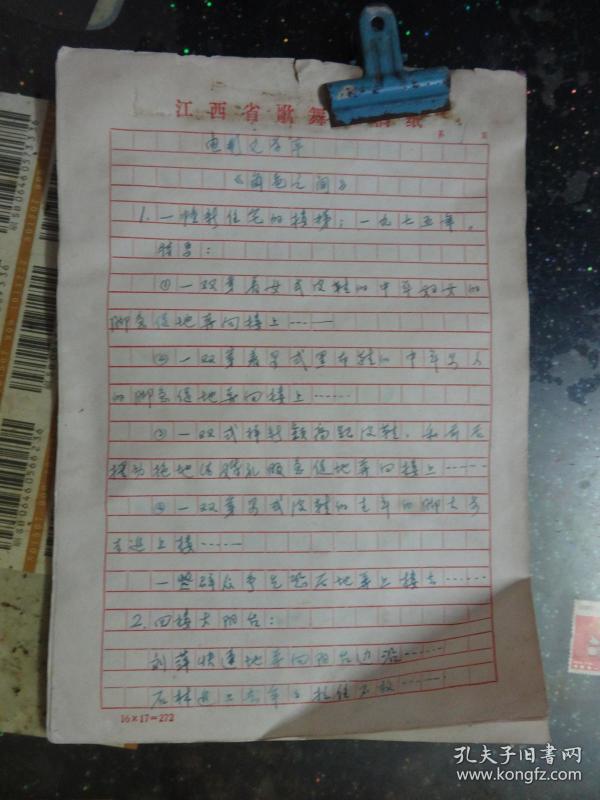 江西省歌舞
第 页
电影文学本
《角色之间》
1. 一幢新住宅的楼梯；一九七五年。
特写：
①一双穿着女式皮鞋的中年妇女的
脚急促地奔向楼上……
②一双穿着男式黑布鞋的中年男人
的脚急促地奔向楼上……
③一双式样新颖高跟皮鞋，和
拖地 急促地奔向楼上……
④一双穿男式皮鞋的青年的脚大步
走进上楼……
一些群众争先恐后地奔上楼去……
2. 四楼大阳台：
刘萍快速地奔向阳台边沿……
石林
16×17=272
孔夫子旧书网
www.kongfz.com